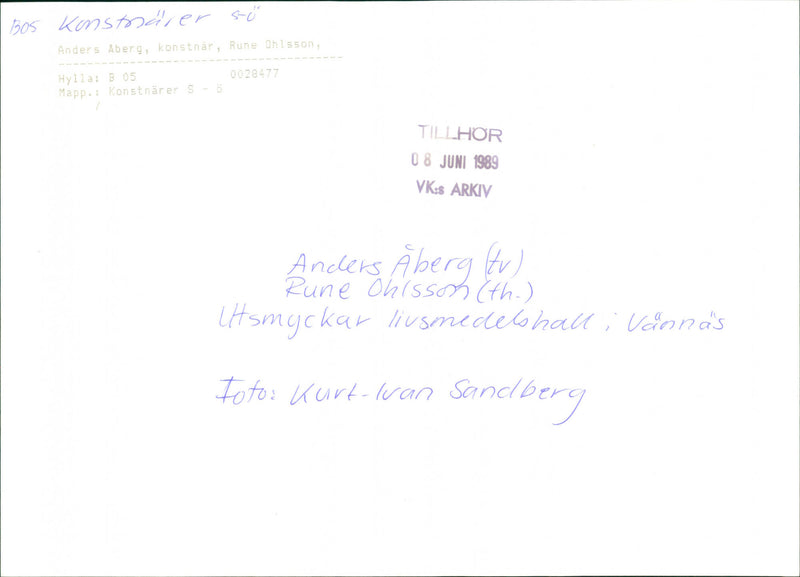 B05 Konstnärer S-Ö
Anders Aberg, konstnär, Rune Ohlsson,
Hylla: B 05 0028477
Mapp.: Konstnärer S - Ö
/
TILLHÖR
08 JUNI 1989
VK:s ARKIV
Anders Åberg (tv)
Rune Ohlsson (th.)
Utsmyckar livsmedelshall i Vännäs
Foto: Kurt-Ivan Sandberg